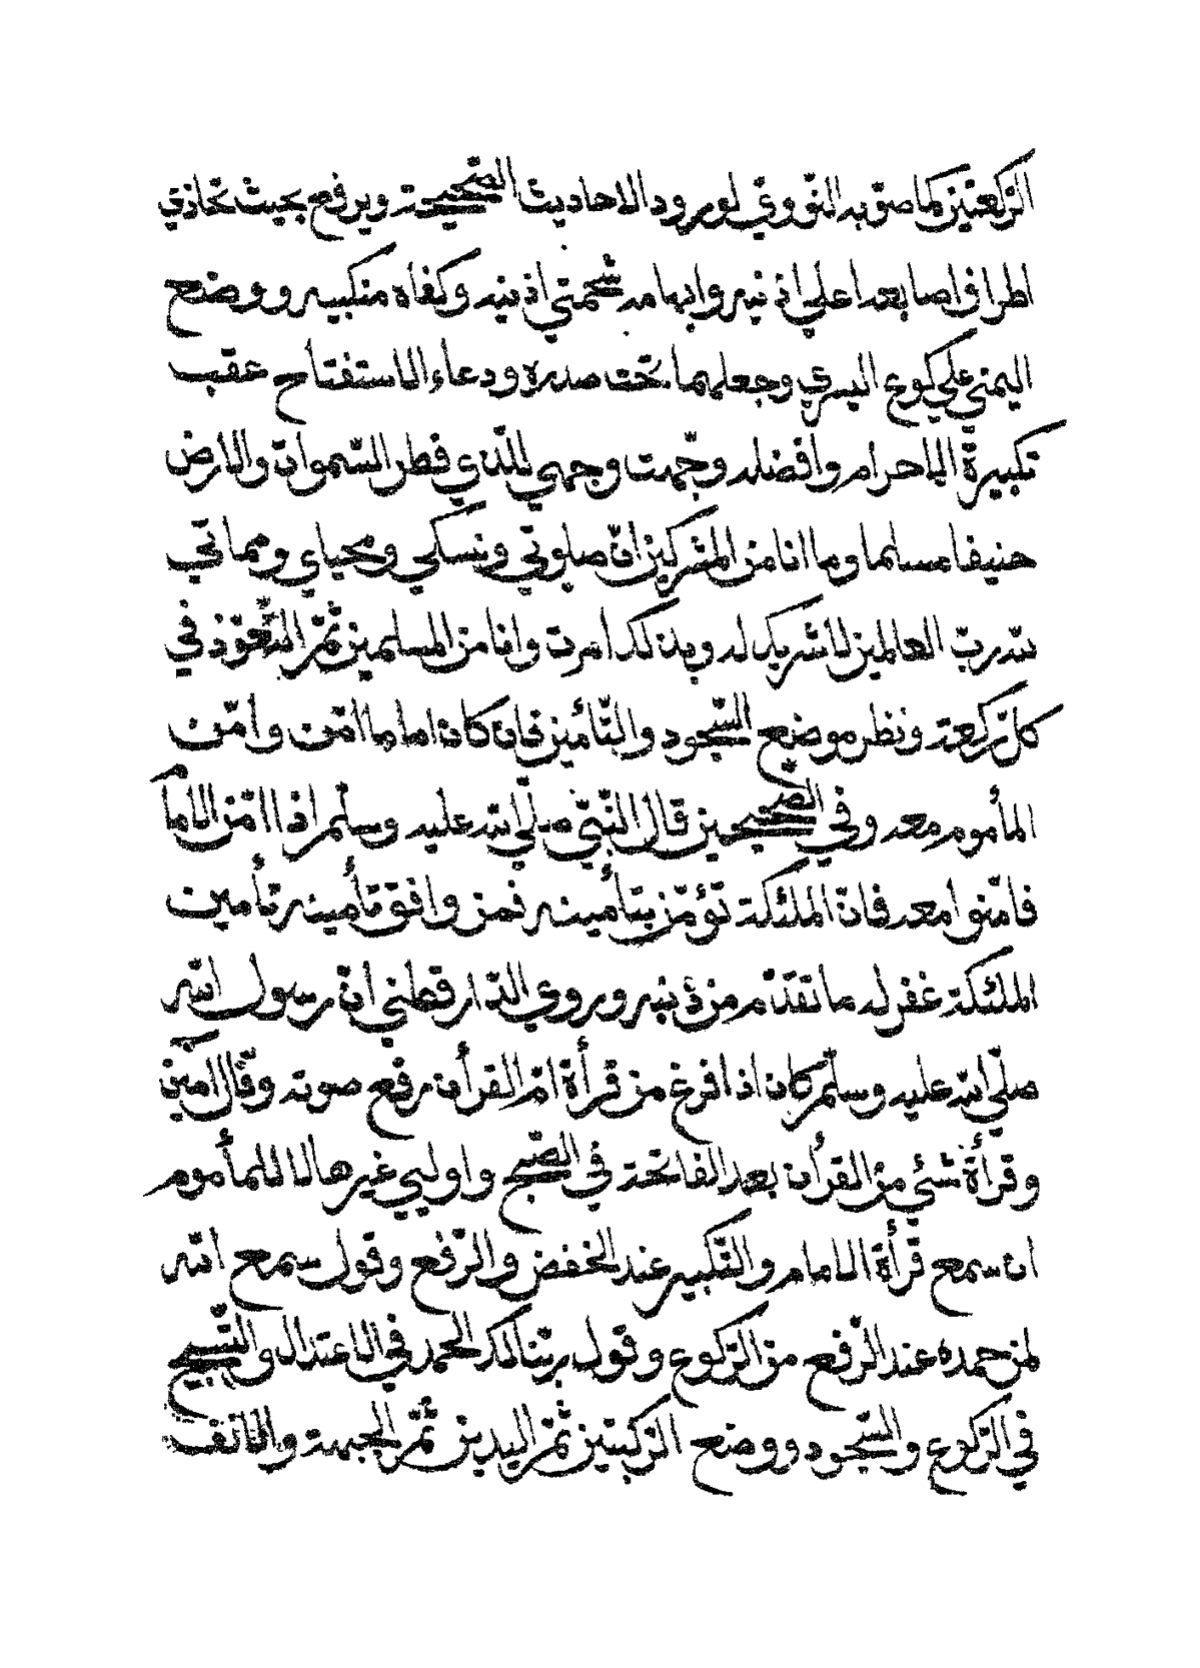 الرّكعتين كما صوّبه النّووي لورود الاحاديث الصّحيحة ويرفع بحيث تحاذي
اطراف اصابعه اعلي اذنيه وابهامه شحمتي اذنيه وكفاه منكبيه ووضع
اليمني علي كوع اليسري وجعلهما تحت صدره ودعاء الاستفتاح عقب
تكبيرة الاحرام وافضله وجّهت وجهي للّذي فطر السّموات والارض
حنيفا مسلما وما انا من المشركين انّ صلوتي ونسكي ومحياي ومماتي
لله ربّ العالمين لا شريك له وبذلك امرت وانا من المسلمين ثمّ التّعوّذ في
كلّ ركعة ونظر موضع السّجود والتّأمين فان كان اماما امّن وامّن
المأموم معه وفي الصّحيحين قال النّبيّ صلّي الله عليه وسلّم اذا امّن الامام
فامّنوا معه فانّ الملئكة تؤمّن بتأمينه فمن وافق تأمينه تأمين
الملئكة غفر له ما تقدّم من ذنبه وروي الدّارقطني انّ رسول الله
صلّي الله عليه وسلّم كان اذا فرغ من قرأة امّ القرأن رفع صوته وقال امين
وقرأة شئي من القرأن بعد الفاتحة في الصّبح واوليي غيرها لا للمأموم
ان سمع قرأة الامام والتّكبير عند الخفض والرّفع وقول سمع الله
لمن حمده عند الرّفع من الرّكوع وقول ربّنا لك الحمد في الاعتدال والتّسبيح
في الرّكوع والسّجود ووضع الرّكبتين ثمّ اليدين ثمّ الجبهة والانف